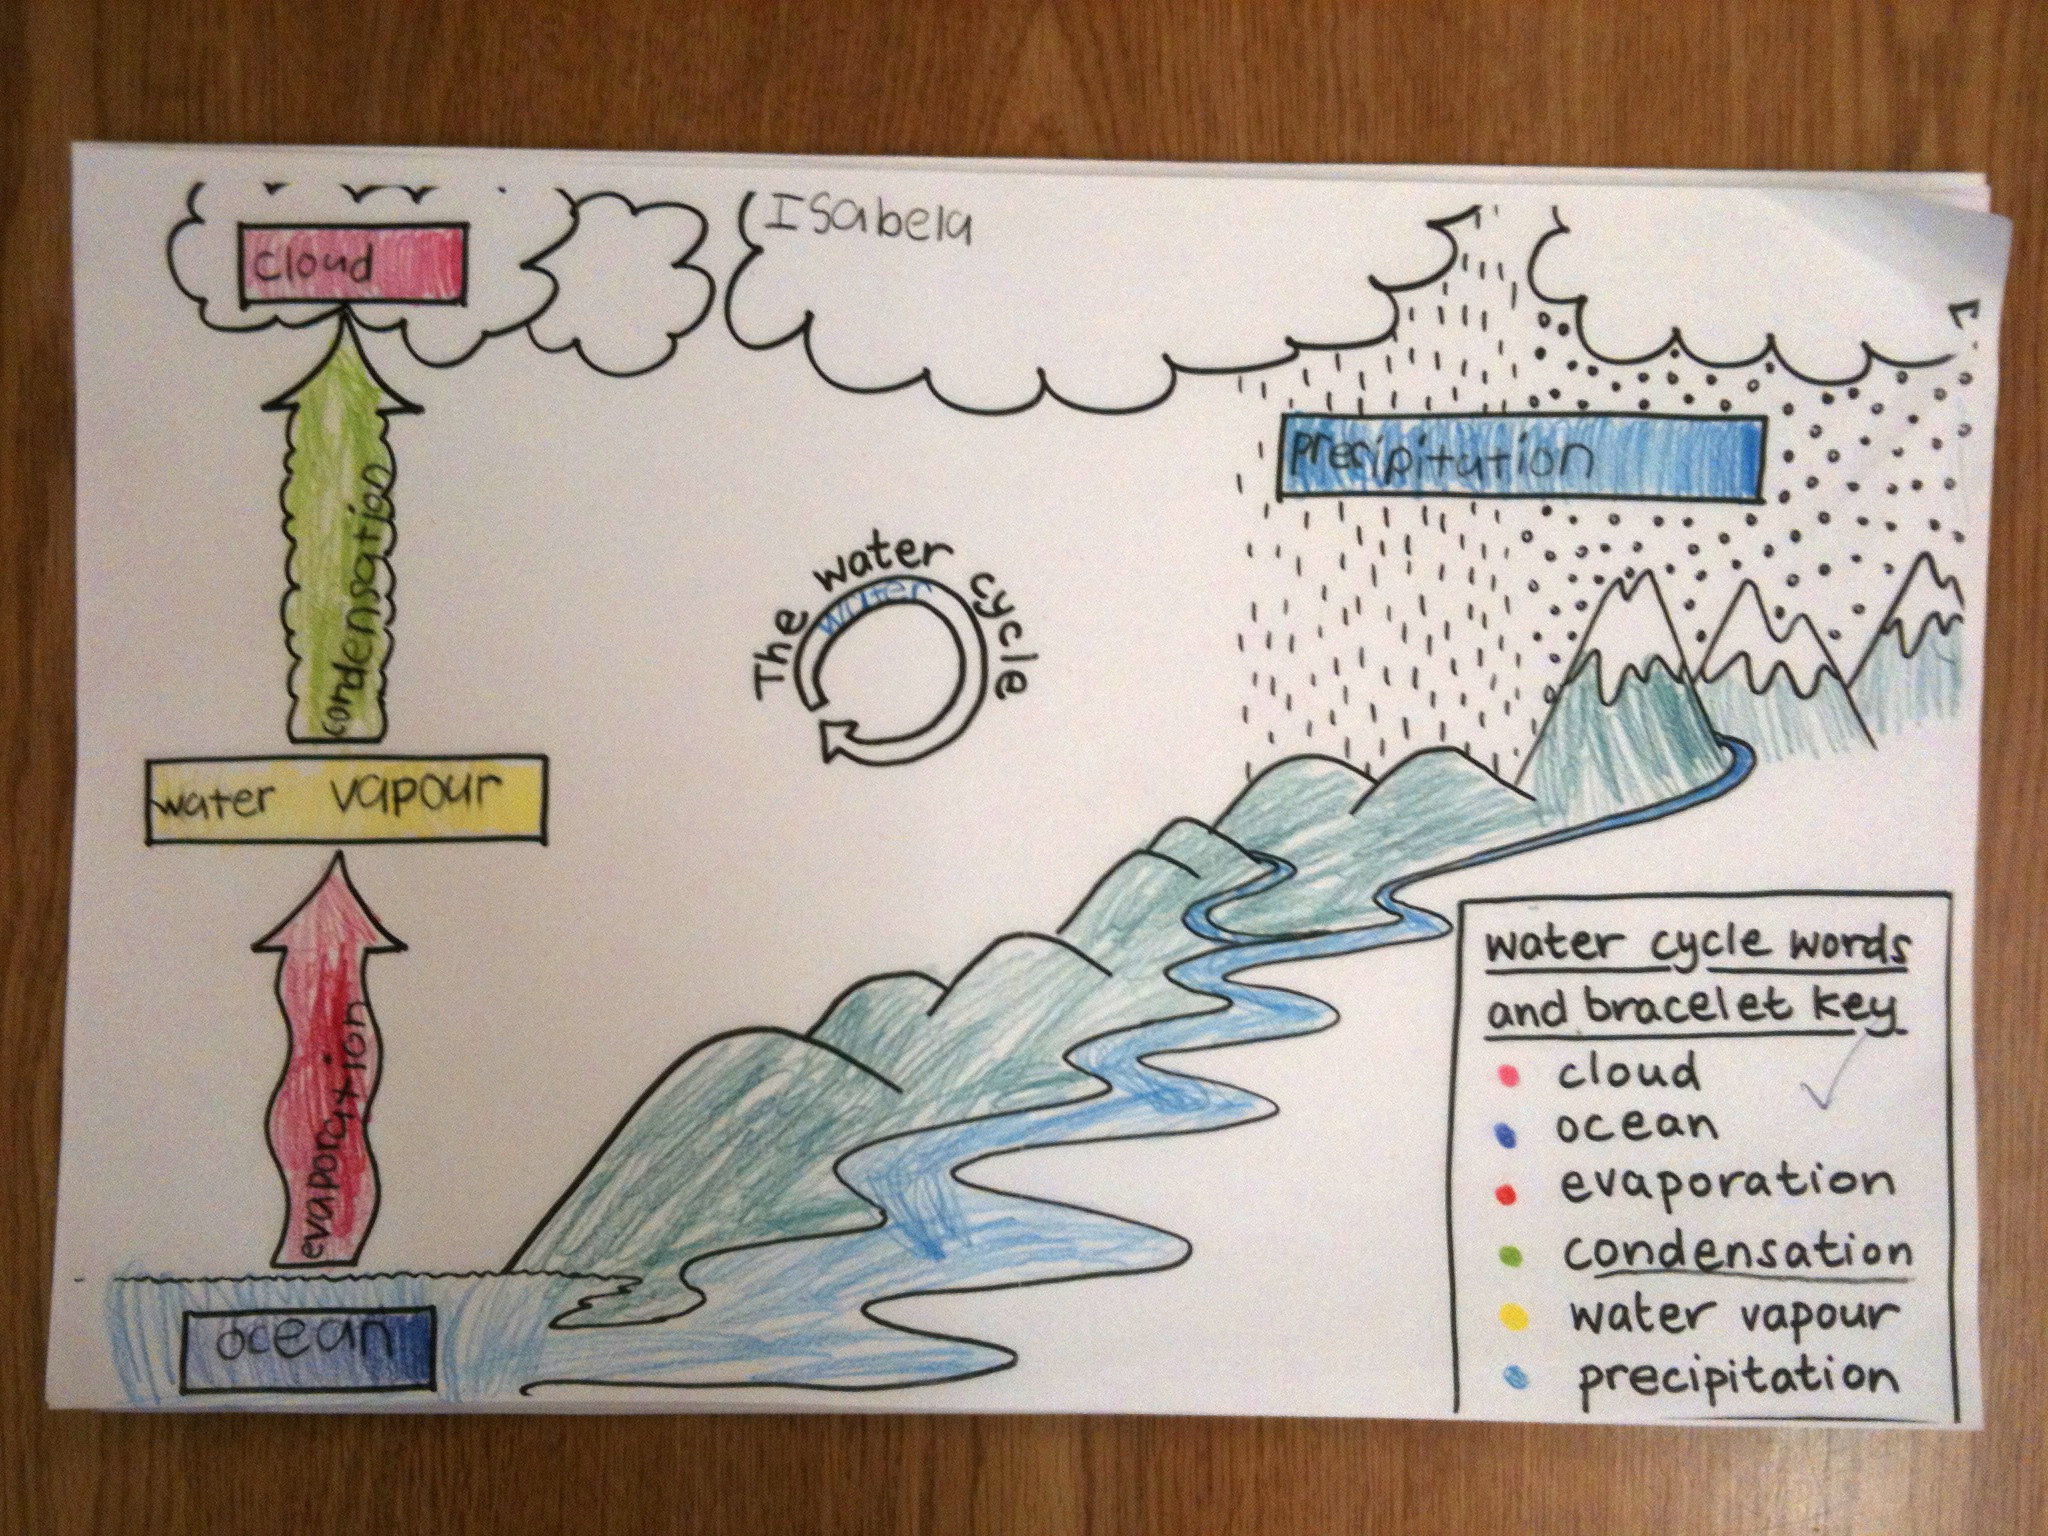 Isabela
cloud
precipitation
condensation
The water cycle
water
water vapour
evaporation
ocean
water cycle words
and bracelet key
cloud
ocean
evaporation
condensation
water vapour
precipitation